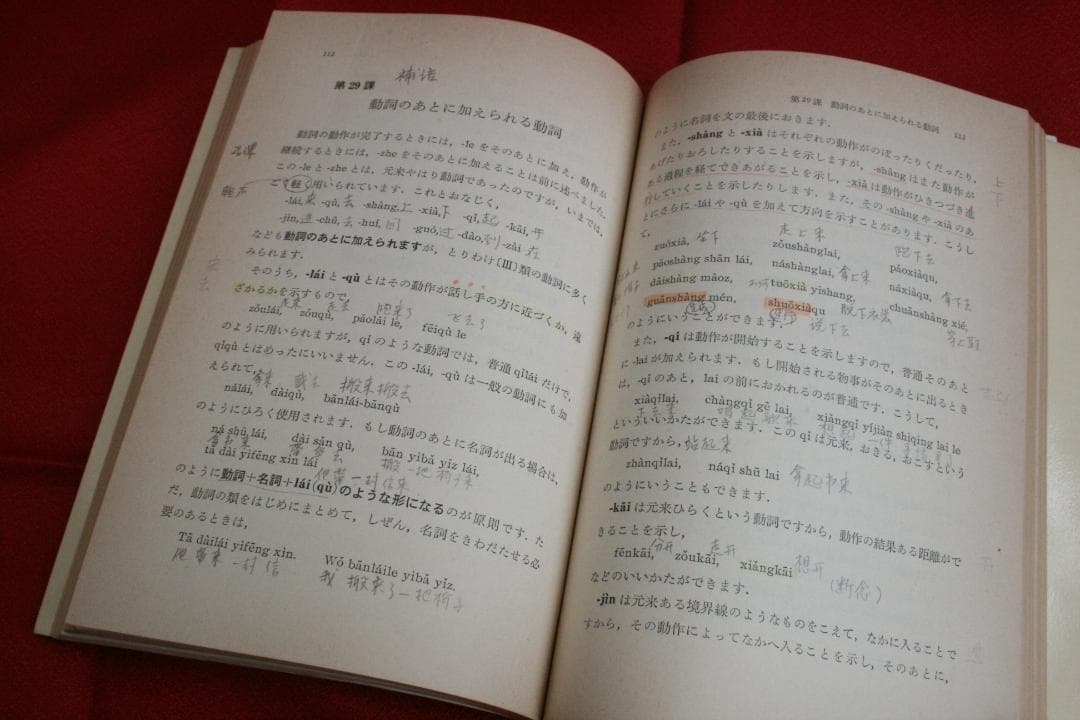 112
補语
第29課
動詞のあとに加えられる動詞
動詞の動作が完了するときには，-le をそのあとに加え，動作が
継続するときには，-zhe をそのあとに加えることは前に述べました。
この -le と -zhe とは，元来やはり動詞であったのですが，いまでは，
ごく軽く用いられています．これとおなじく，
軽声
-lái, 来 -qù, 去 -shàng, 上 -xià, 下 -qǐ, 起 -kāi, 开
-jìn, 进 -chū, 去 -huí, 回 -guò, 过 -dào, 到 -zài 在
なども動詞のあとに加えられますが，とりわけ〔III〕類の動詞に多く
みられます．
そのうち，-lái と -qù とはその動作が話し手の方に近づくか，遠
ざかるかを示すもので，
走来 走去 跑来了 飞去了
zǒulái, zǒuqù, pǎolái le, fēiqù le
のように用いられますが，qǐ のような動詞では，普通 qǐlái だけで，
qǐqù とはめったにいいません．この -lái, -qù は一般の動詞にも加
えられて，
拿来 戴去 搬来搬去
nálái, dàiqù, bānlái-bānqù
のようにひろく使用されます．もし動詞のあとに名詞が出る場合は，
ná shū lái, dài sǎn qù, bān yìbǎ yǐz lái,
拿书来 带伞去 搬一把椅子来
tā dài yìfēng xìn lái 他带一封信来
のように動詞＋名詞＋lái (qù) のような形になるのが原則です．た
だ，動詞の類をはじめにまとめて，しぜん，名詞をきわだたせる必
要のあるときは，
Tā dàilái yìfēng xìn. Wǒ bānláile yìbǎ yǐz.
他带来一封信 我搬来了一把椅子
第29課 動詞のあとに加えられる動詞 113
のように名詞を文の最後におきます．
また，-shàng と -xià はそれぞれの動作がのぼったりくだったり，
あげたりおろしたりすることを示しますが，-shàng はまた動作が
ある過程を経てできあがることを示し，-xià は動作がひきつづき進
行していくことを示したりします．また，その -shàng や -xià のあ
とにさらに -lái や -qù を加えて方向を示すことがあります．こうし
て，
坐下 走上来 跑下去
zuòxià, zǒushànglai, pǎoxiàqu,
pǎoshàng shān lái, náshànglai, 拿上来 náxiàqu, 拿下去
dàishàng màoz, tuōxià yīshang, chuānshàng xié,
脱下衣裳 穿上鞋
guānshàng mén, shuōxiàqu 说下去
のようにいうことができます．
また，-qǐ は動作が開始することを示しますので，普通そのあと
に -lai が加えられます．もし開始される物事がそのあとに出るとき
は，-qǐ のあと，lai の前におかれるのが普通です．こうして，
xiàqǐlai, chàngqǐ gē lai, xiǎngqǐ yíjiàn shìqing lai le
下起来 唱起歌来 想起一件事情来了
といういいかたができます．この qǐ は元来，おきる，おこすという
動詞ですから，站起来
zhànqǐlai, náqǐ shū lai 拿起书来
のようにいうこともできます．
-kāi は元来ひらくという動詞ですから，動作の結果ある距離がで
きることを示し，
分开 走开 想开
fēnkāi, zǒukāi, xiǎngkāi
(断念)
などのいいかたができます．
-jìn は元来ある境界線のようなものをこえて，なかに入ることで
すから，その動作によってなかへ入ることを示し，そのあとに，